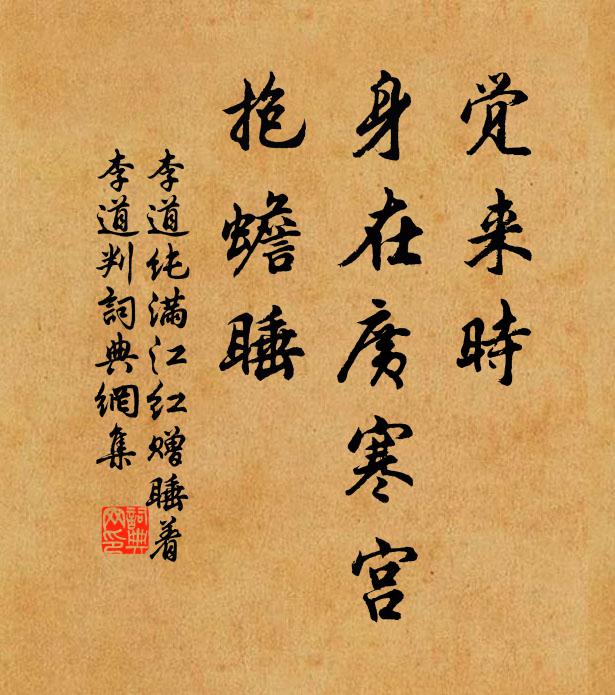 觉来時
身在广寒宫
抱蟾睡
李道纯满江红赠睡着
李道判詞典網集
詞典